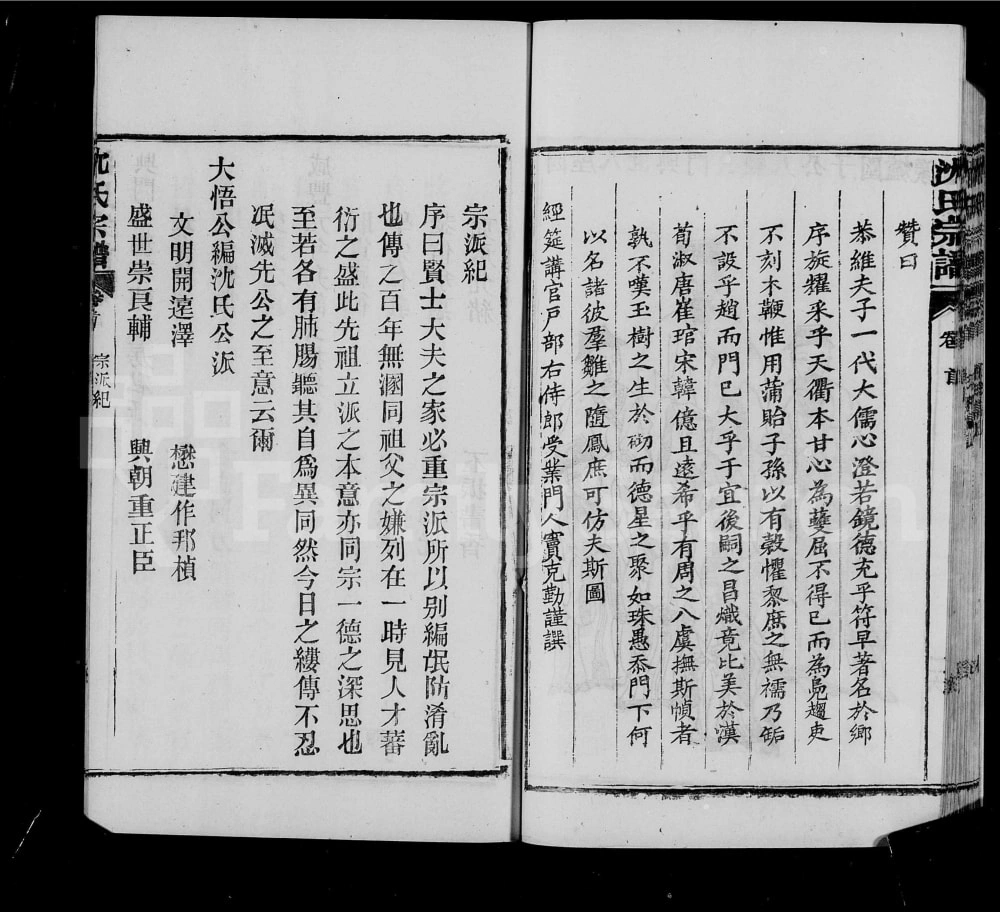 沈氏宗譜
卷首
贊曰
恭維夫子一代大儒心澄若鏡德充乎符早著名於鄉
序旋耀采乎天衢本甘心為蠖屈不得已而為鳧趨吏
不刻木鞭惟用蒲貽子孫以有穀懼黎庶之無襦乃缿
不設乎趙而門已大乎于宜後嗣之昌熾竟比美於漢
荀淑唐崔琯宋韓億且遠希乎有周之八虞撫斯幀者
孰不嘆玉樹之生於砌而德星之聚如珠愚忝門下何
以名諸彼羣雛之隨鳳庶可仿夫斯圖
經筵講官戶部右侍郎受業門人竇克勤謹譔
宗派紀
序曰賢士大夫之家必重宗派所以別編氓防淆亂
也傳之百年無溷同祖父之嫌列在一時見人才蕃
衍之盛此先祖立派之本意亦同宗一德之深思也
至若各有肺腸聽其自為異同然今日之縷傳不忍
泯滅先公之至意云爾
大悟公編沈氏公派
文明開遠澤 懋建作邦楨
盛世崇良輔 興朝重正臣
沈氏宗譜
卷首
宗派紀